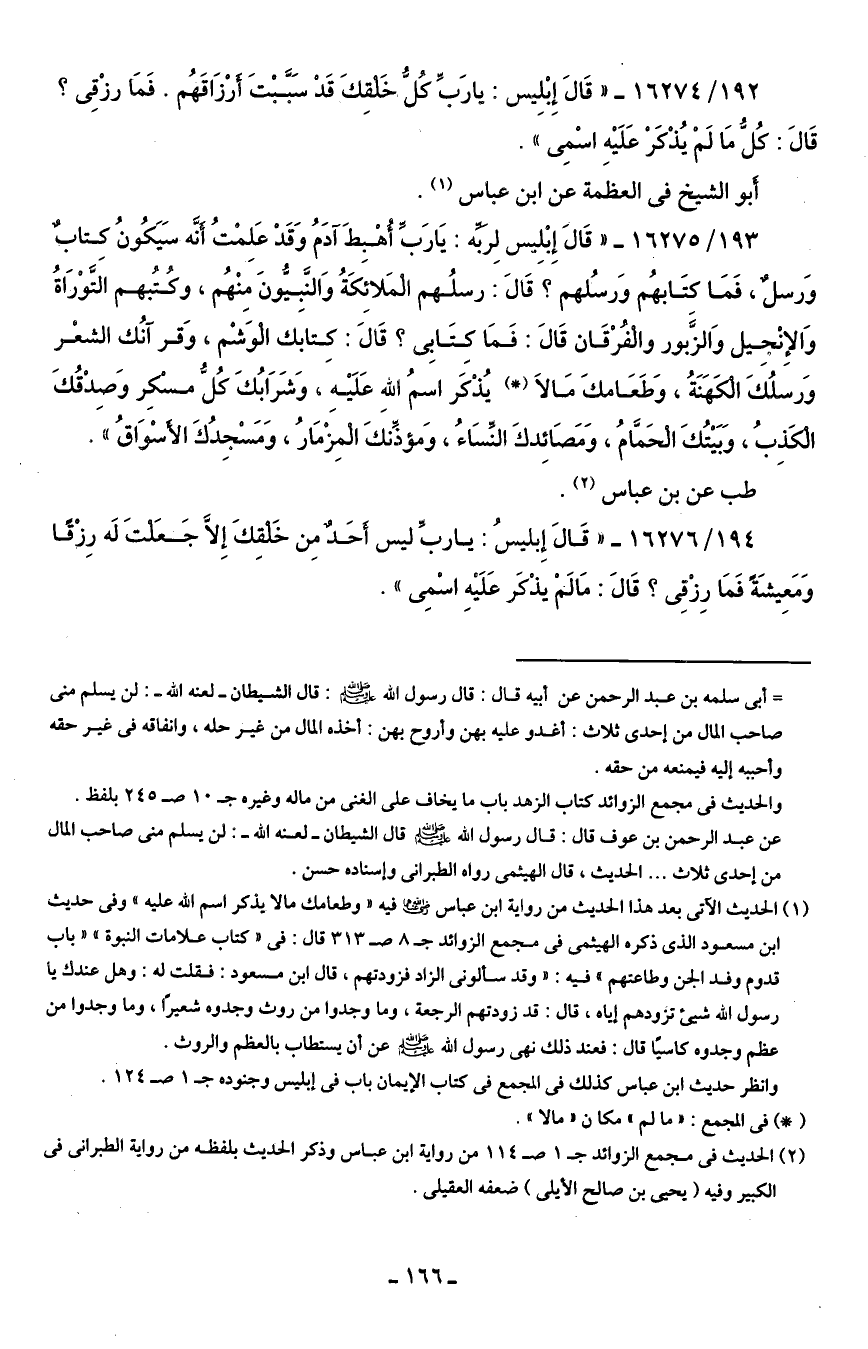 ١٦٢٧٤/١٩٢ ـ « قَالَ إِبْلِيس : يارَبِّ كُلُّ خَلْقِكَ قَدْ سَبَّبْتَ أَرْزَاقَهُم . فَمَا رِزْقِى ؟
قَالَ : كُلُّ مَا لَمْ يُذْكَرْ عَلَيْهِ اسْمِى » .
أبو الشيخ فى العظمة عن ابن عباس (١) .
١٦٢٧٥/١٩٣ ـ « قَالَ إِبْلِيس لِربِّه : يَارَبِّ أُهْبِطَ آدَمُ وَقَدْ عَلِمْتُ أَنَّه سَيَكُونُ كِتَابٌ
وَرسلٌ ، فَمَا كتَابهُم وَرسُلُهم ؟ قَالَ : رسلُهم الْمَلائكَةُ وَالنَّبِيُّونَ مِنْهُم ، وكُتُبهم التَّوْرَاةُ
وَالإِنْجِيل وَالزَّبُور والفُرْقَان قَالَ : فَمَا كِتَابِى ؟ قَالَ : كِتَابك الْوَشْم ، وَقر آنُك الشعْر
وَرسلُكَ الْكَهَنَةُ ، وَطَعَامكَ مَالاَ (*) يُذْكَر اسمُ اللهِ عَلَيْهِ ، وَشَرَابُكَ كُلُّ مسْكِر وَصِدْقُكَ
الْكَذِبُ ، وَبَيْتُكَ الْحَمَّامُ ، وَمَصَائدكَ النِّسَاءُ ، وَمؤذِّنكَ الْمِزْمَارُ ، وَمَسْجِدُكَ الأَسْوَاقُ » .
طب عن بن عباس (٢) .
١٦٢٧٦/١٩٤ ـ « قَالَ إِبليسُ : ياربِّ ليس أَحَدٌ مِن خَلْقِكَ إِلاَّ جَعَلْتَ لَه رِزْقًا
وَمَعِيشَةً فَمَا رِزْقِى ؟ قَالَ : مَالَمْ يذْكَر عَلَيْهِ اسْمِى » .
= أبى سلمه بن عبد الرحمن عن أبيه قال : قال رسول الله ﷺ : قال الشيطان ـ لعنه الله ـ : لن يسلم منى
صاحب المال من إحدى ثلاث : أغدو عليه بهن وأروح بهن : أخذه المال من غير حله ، وانفاقه فى غير حقه
وأحببه إليه فيمنعه من حقه .
والحديث فى مجمع الزوائد كتاب الزهد باب ما يخاف على الغنى من ماله وغيره جـ ١٠ صـ ٢٤٥ بلفظ .
عن عبد الرحمن بن عوف قال : قال رسول الله ﷺ قال الشيطان ـ لعنه الله ـ : لن يسلم منى صاحب المال
من إحدى ثلاث ... الحديث ، قال الهيثمى رواه الطبرانى وإسناده حسن .
(١) الحديث الآتى بعد هذا الحديث من رواية ابن عباس رضي الله عنه فيه « وطعامك مالا يذكر اسم الله عليه » وفى حديث
ابن مسعود الذى ذكره الهيثمى فى مجمع الزوائد جـ ٨ صـ ٣١٣ قال : فى « كتاب علامات النبوة » « باب
قدوم وفد الجن وطاعتهم » فيه : « وقد سألونى الزاد فزودتهم ، قال ابن مسعود : فقلت له : وهل عندك يا
رسول الله شيئ تزودهم إياه ، قال : قد زودتهم الرجعة ، وما وجدوا من روث وجدوه شعيراً ، وما وجدوا من
عظم وجدوه كاسيًا قال : فعند ذلك نهى رسول الله ﷺ عن أن يستطاب بالعظم والروث .
وانظر حديث ابن عباس كذلك فى المجمع فى كتاب الإيمان باب فى إبليس وجنوده جـ ١ صـ ١٢٤ .
( * ) فى المجمع : « ما لم » مكان « مالا » .
(٢) الحديث فى مجمع الزوائد جـ ١ صـ ١١٤ من رواية ابن عباس وذكر الحديث بلفظه من رواية الطبرانى فى
الكبير وفيه ( يحيى بن صالح الأيلى ) ضعفه العقيلى .
ـ ١٦٦ ـ